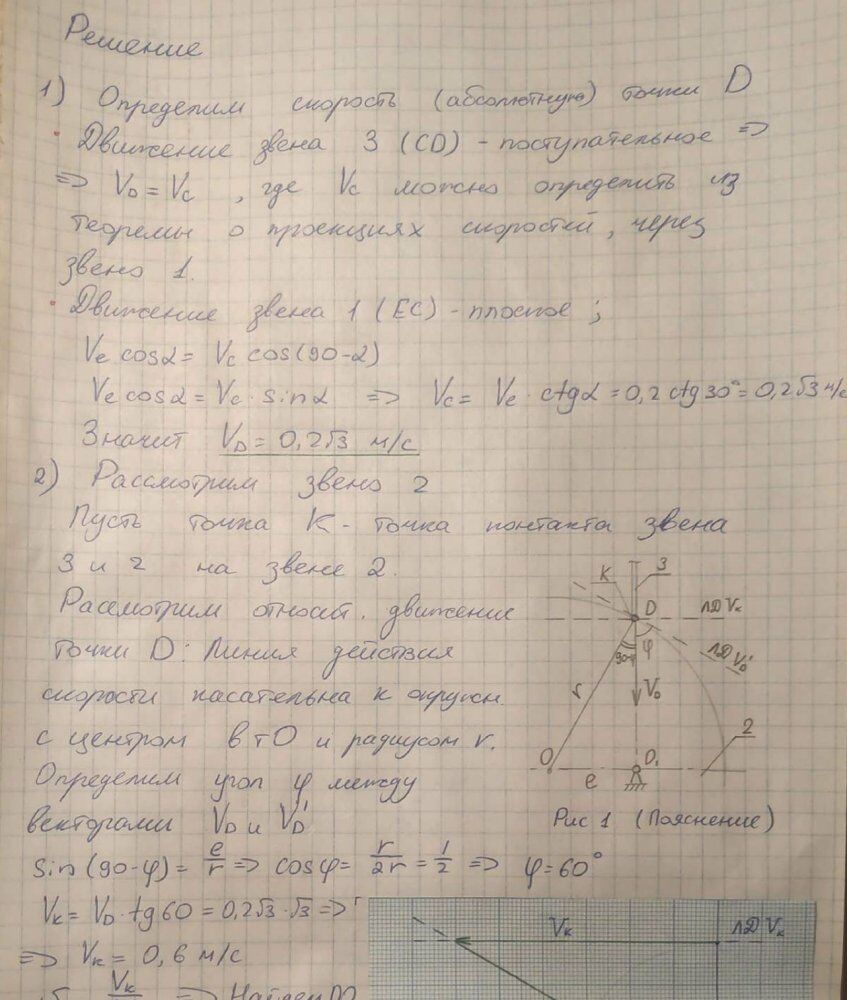 Решение
1) Определим скорость (абсолютную) точки D
• Движение звена 3 (CD) - поступательное =>
=> V_D = V_C , где V_C можно определить из
теоремы о проекциях скоростей, через
звено 1.
• Движение звена 1 (EC) - плоское ;
V_e cosα = V_c cos(90-α)
V_e cosα = V_c · sinα => V_c = V_e · ctgα = 0,2 ctg30° = 0,2√3 м/с
Значит V_D = 0,2√3 м/с
2) Рассмотрим звено 2
Пусть точка K - точка контакта звена
3 и 2 на звене 2.
Рассмотрим относит. движение
точки D: Линия действия
скорости касательна к окружн.
с центром в т О и радиусом r.
Определим угол φ между
векторами V_D и V_D'
sin(90-φ) = e/r => cosφ = r/2r = 1/2 => φ = 60°
V_K = V_D · tg60 = 0,2√3 · √3 =>
=> V_K = 0,6 м/с
V_K
=> Найдем
K
3
D
ЛД V_K
90-φ
φ
ЛД V_D'
r
V_D
2
O
O₁
e
Рис 1 (Пояснение)
V_K
ЛД V_K